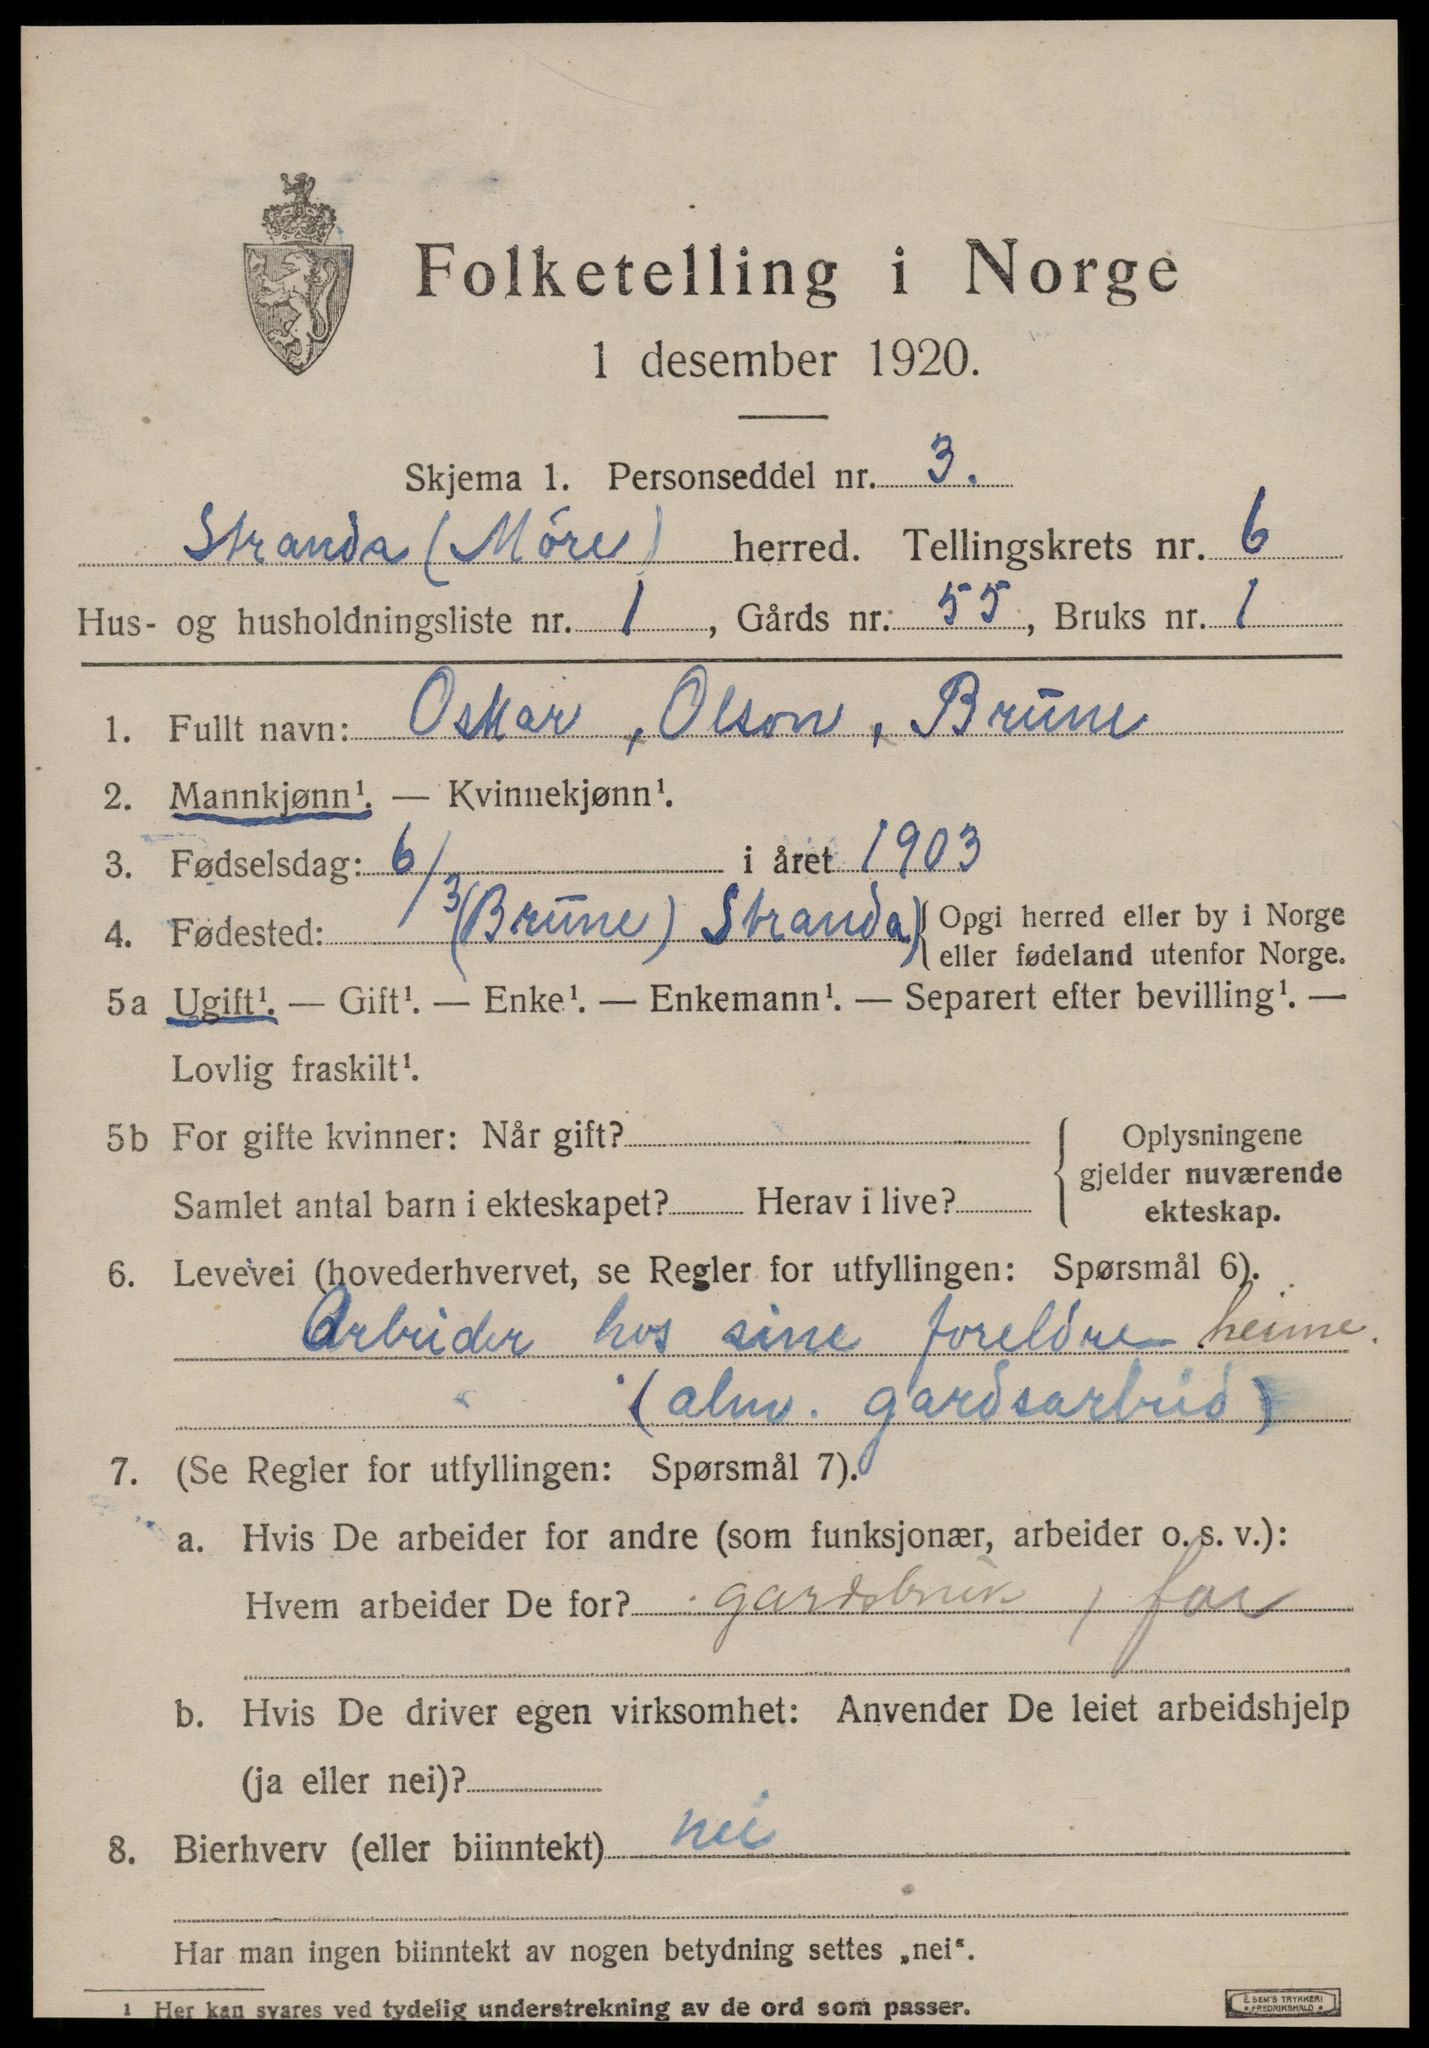 Folketelling i Norge
1 desember 1920.
Skjema 1. Personseddel nr. 3.
Stranda (Møre) herred. Tellingskrets nr. 6
Hus- og husholdningsliste nr. 1, Gårds nr. 55, Bruks nr. 1
1. Fullt navn: Oskar, Olson, Brūne
2. Mannkjønn¹. — Kvinnekjønn¹.
3. Fødselsdag: 6/3 i året 1903
4. Fødested: (Brūne) Stranda) { Opgi herred eller by i Norge
eller fødeland utenfor Norge.
5a Ugift¹. — Gift¹. — Enke¹. — Enkemann¹. — Separert efter bevilling¹. —
Lovlig fraskilt¹.
5b For gifte kvinner: Når gift?
Samlet antal barn i ekteskapet? Herav i live?
Oplysningene
gjelder nuværende
ekteskap.
6. Levevei (hovederhvervet, se Regler for utfyllingen: Spørsmål 6).
Arbeider hos sine foreldre heime.
(alm. gardsarbeid)
7. (Se Regler for utfyllingen: Spørsmål 7).
a. Hvis De arbeider for andre (som funksjonær, arbeider o. s. v.):
Hvem arbeider De for? gardsbruk, far
b. Hvis De driver egen virksomhet: Anvender De leiet arbeidshjelp
(ja eller nei)?
8. Bierhverv (eller biinntekt) nei
Har man ingen biinntekt av nogen betydning settes „nei“.
¹ Her kan svares ved tydelig understrekning av de ord som passer.
E. SEM'S TRYKKERI
FREDRIKSHALD